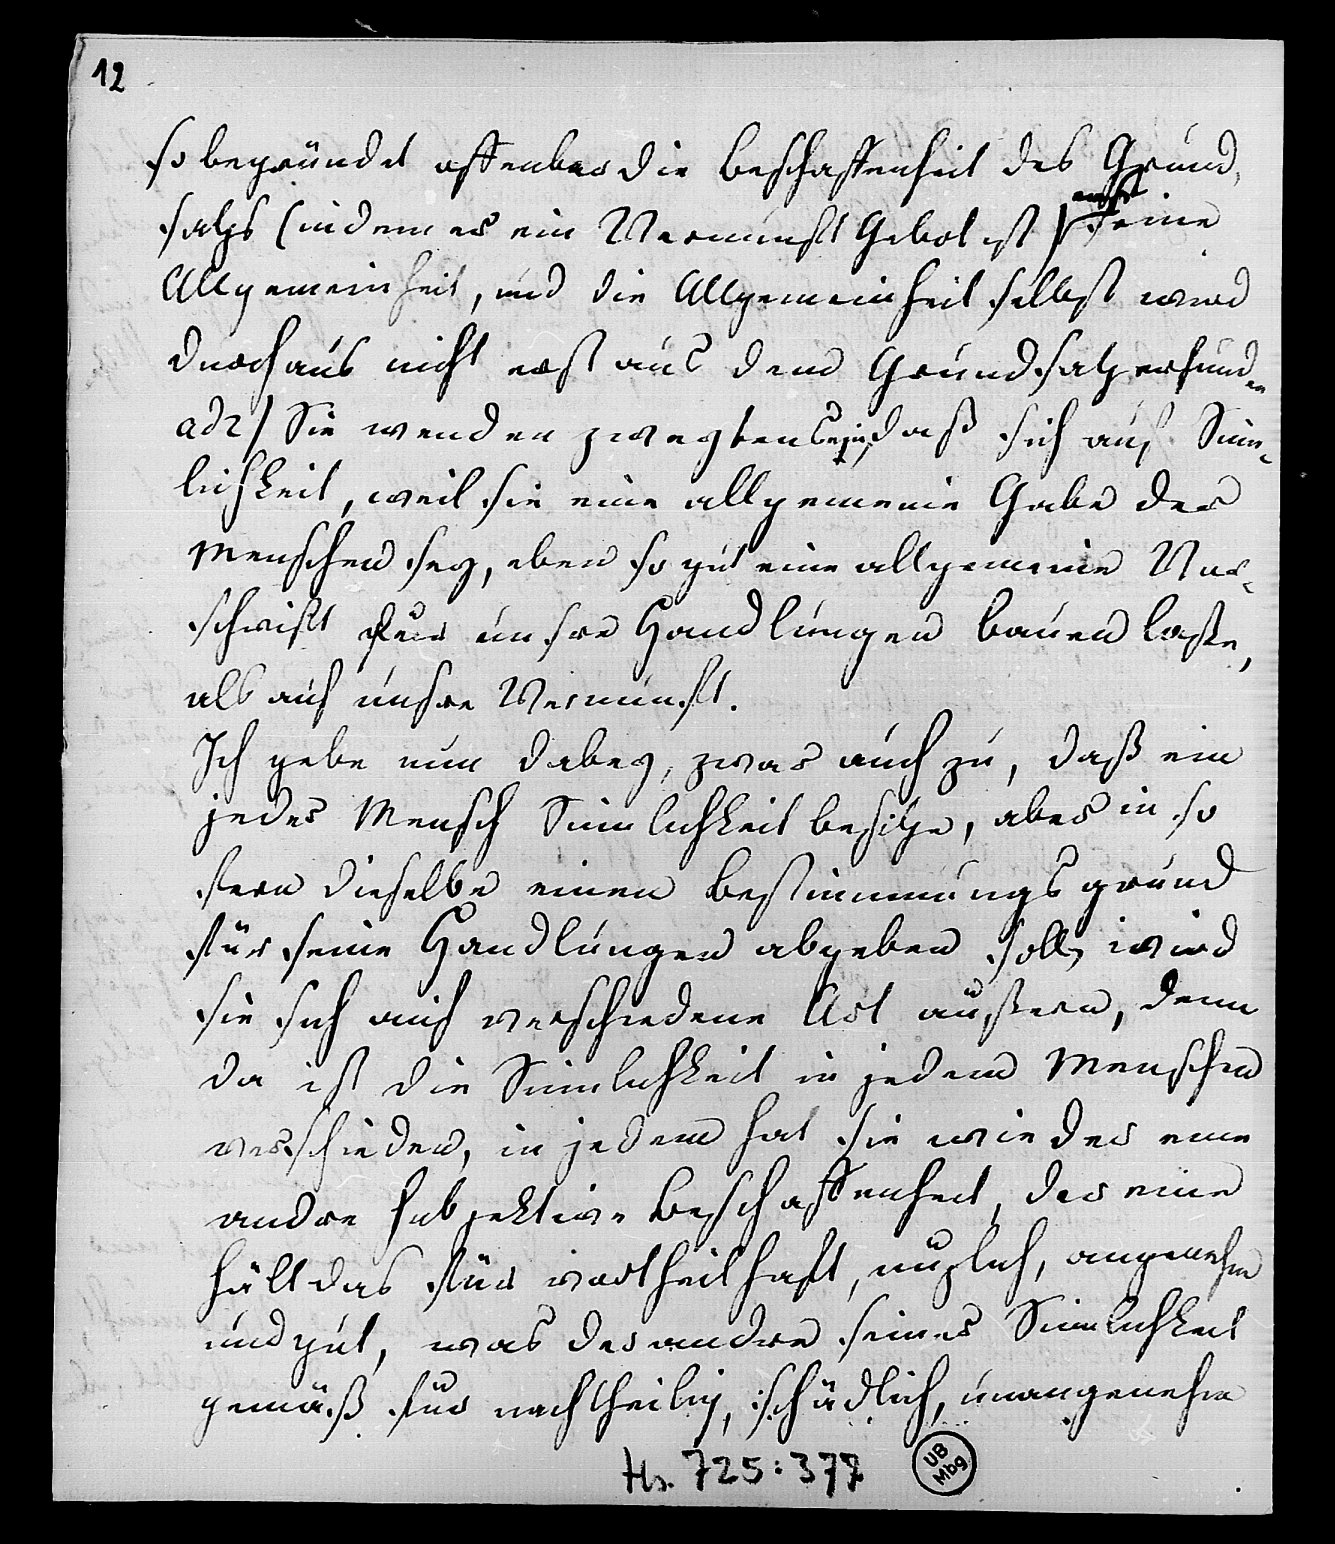 12
so begründet offenbar die Beschaffenheit des Grund,
satzes (indem es ein Vernunft Gebot ist) erst seine
Allgemeinheit, und die Allgemeinheit selbst wird
durchaus nicht erst aus dem Grundsatz erfunden
ad 2) Sie wenden zweytens ein, daß sich auf Sinn-
lichkeit, weil sie eine allgemeine Gabe der
Menschen sey, eben so gut eine allgemeine Vor-
schrift für unsre Handlungen bauen lasse,
als auf unsre Vernunft.
Ich gebe nun dabey, zwar auch zu, daß ein
jeder Mensch Sinnlichkeit besitze, aber in so
fern dieselbe einen Bestimmungsgrund
für seine Handlungen abgeben soll, wird
sie sich auf verschiedene Art äußern, denn
da ist die Sinnlichkeit in jedem Menschen
verschieden, in jedem hat sie wieder eine
andre subjektive Beschaffenheit, der eine
hält das für vortheilhaft, nüzlich, angenehm
und gut, was der andre seiner Sinnlichkeit
gemäß für nachtheilig, schädlich, unangenehm
Hs. 725:377
UB
Mbg